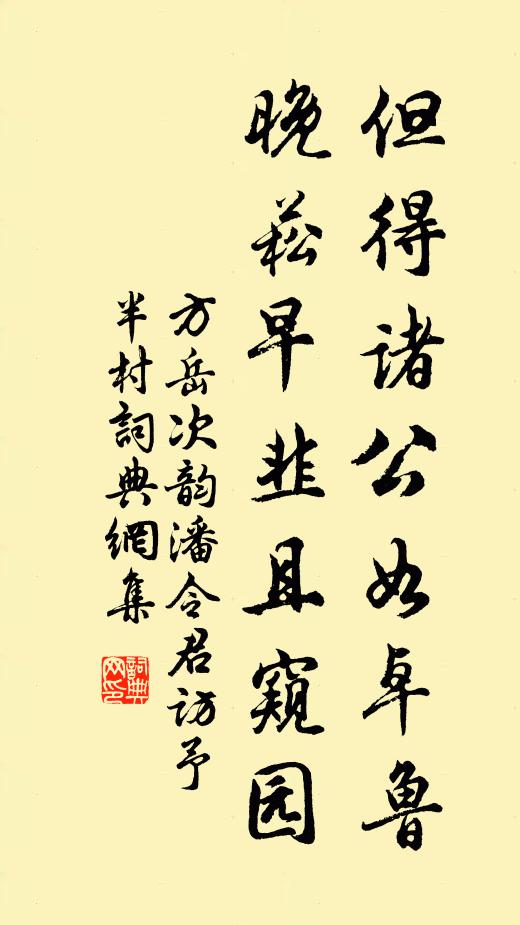 但得诸公如卓鲁
晚菘早韭且窥园
方岳次韵潘令君访予
半村詞典網集
詞典網印